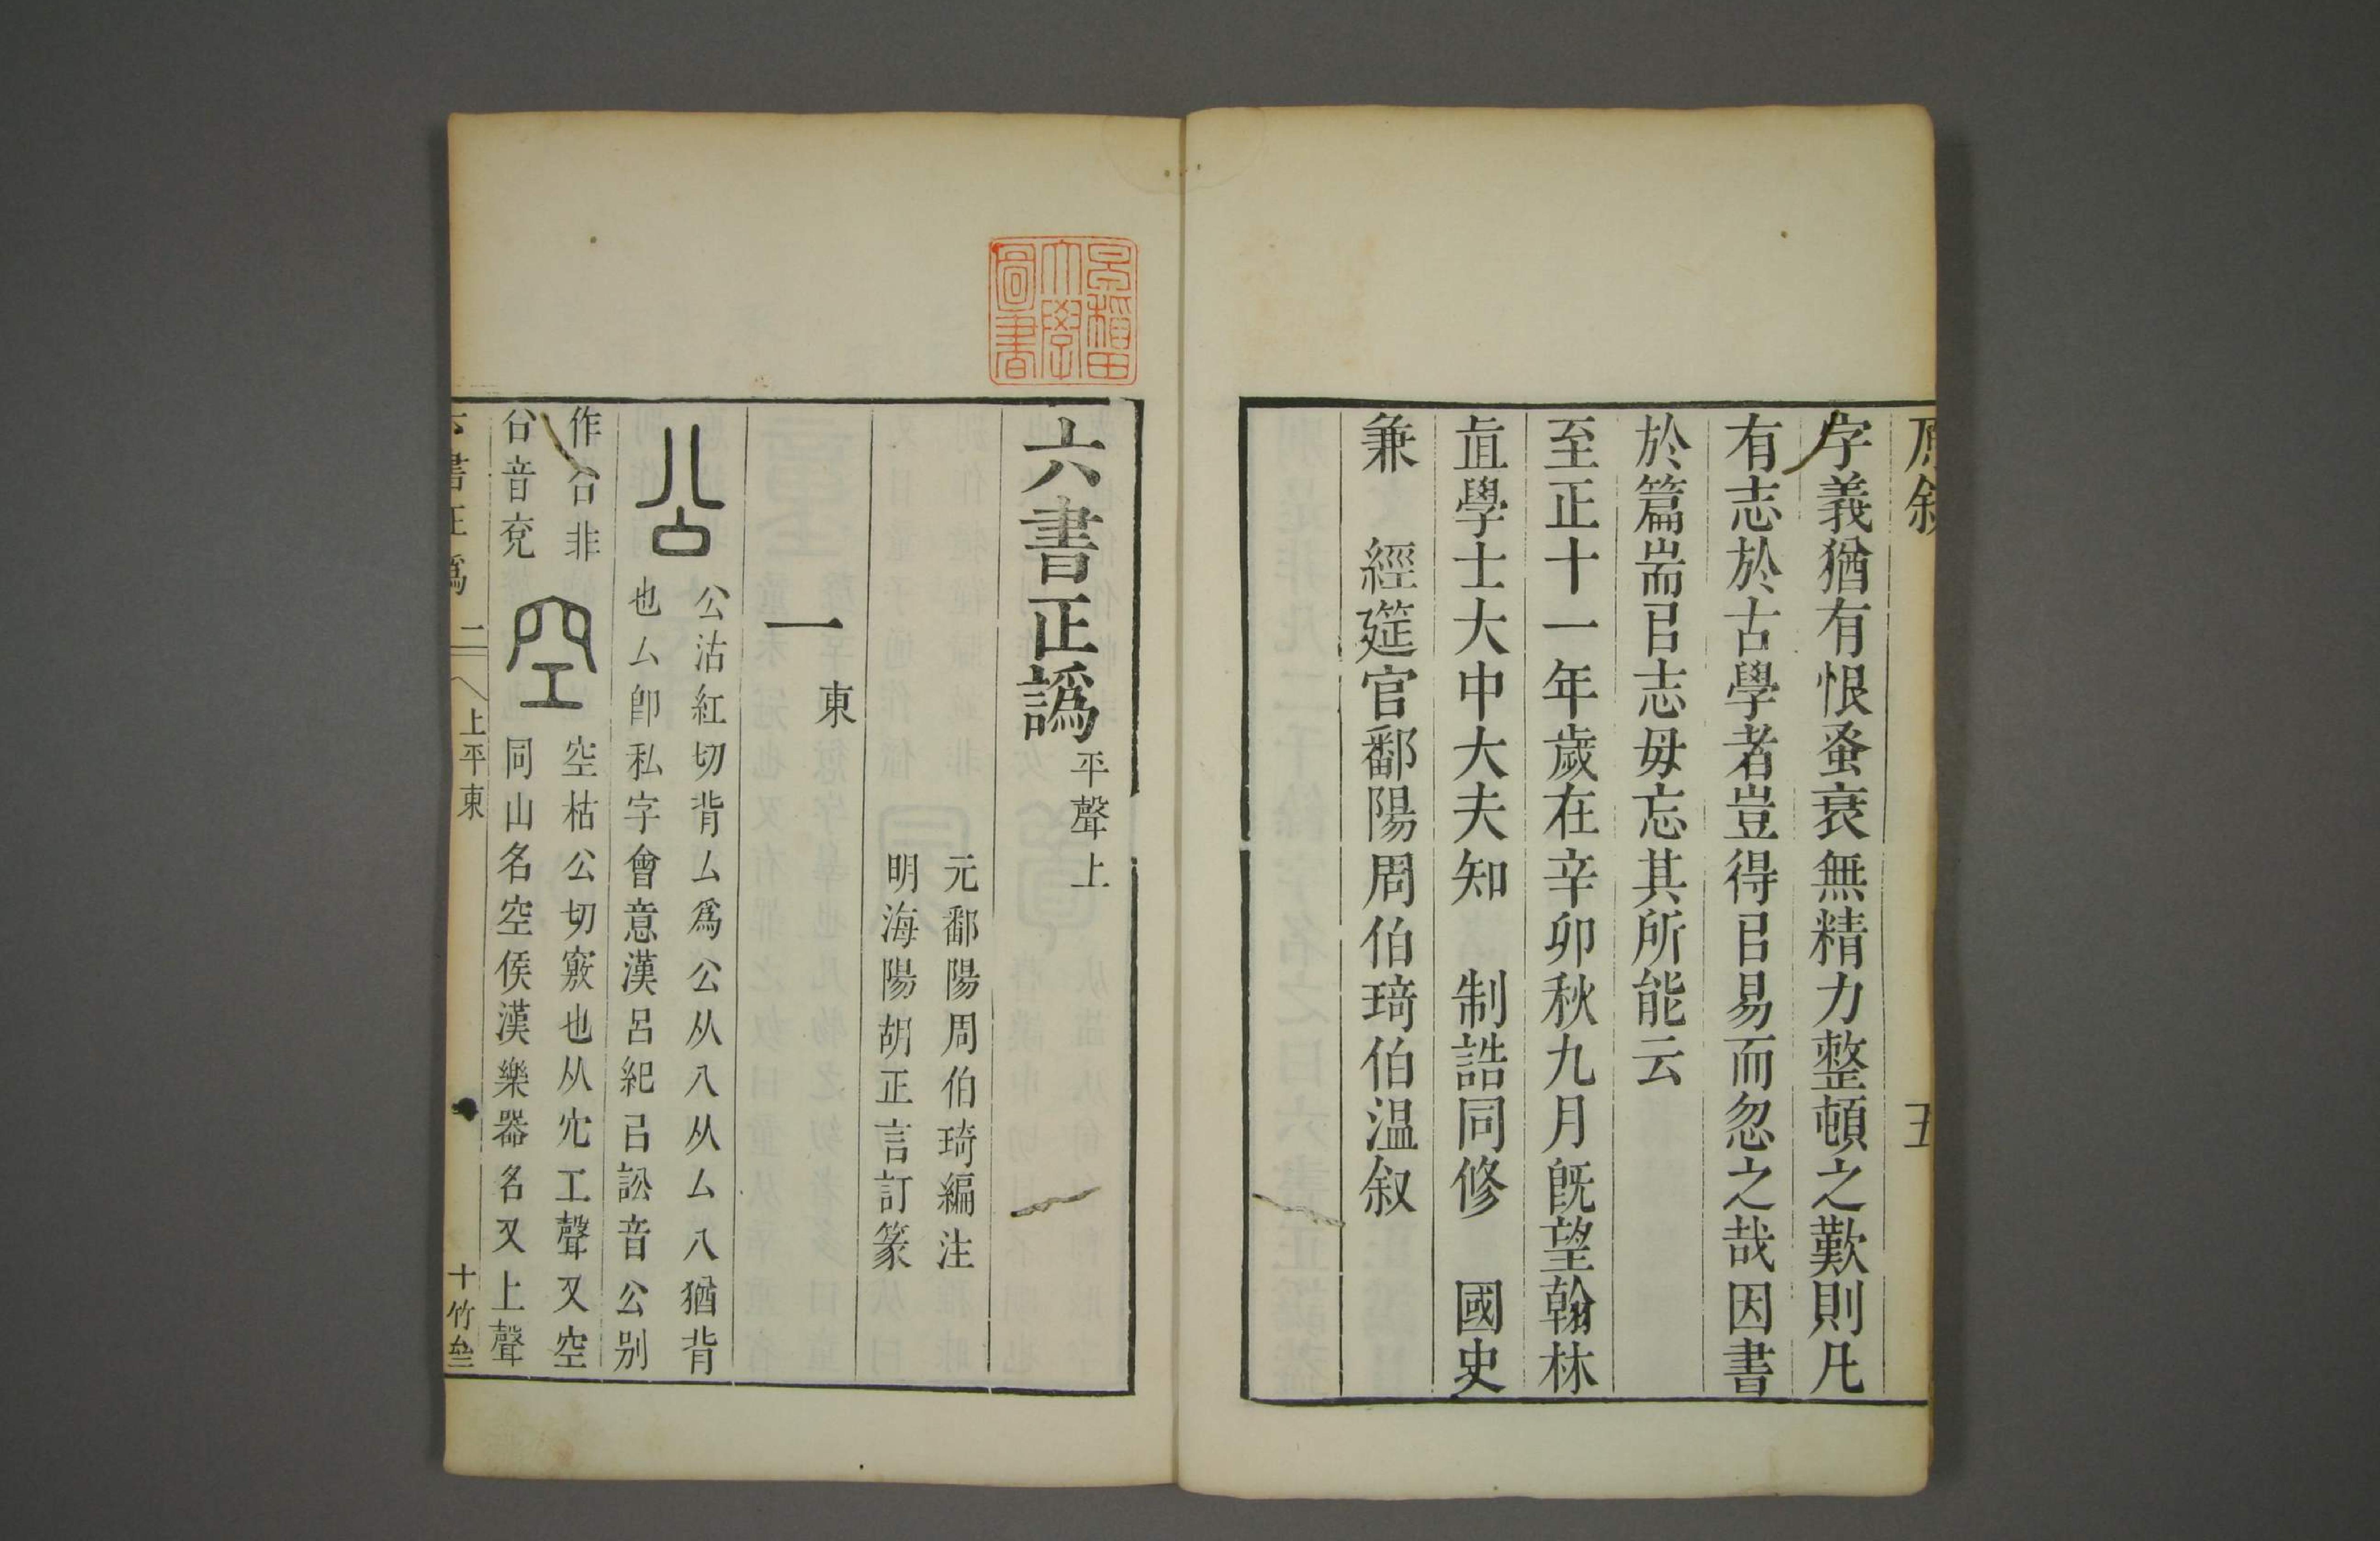 原敘 五
字義猶有恨蚤衰無精力整頓之歎則凡
有志於古學者豈得㠯易而忽之哉因書
於篇耑㠯志毋忘其所能云
至正十一年歲在辛卯秋九月旣望翰林
直學士大中大夫知 制誥同修 國史
兼 經筵官鄱陽周伯琦伯温叙
早稲田大學圖書
六書正譌 平聲上
元鄱陽周伯琦編注
明海陽胡正言訂篆
一東
公 公沽紅切背厶爲公从八从厶八猶背
也厶卽私字會意漢呂紀㠯訟音公别
作㕣非
㕣音兗
空 空枯公切竅也从穴工聲又空
同山名空侯漢樂器名又上聲
六書正譌 二 上平東 十竹